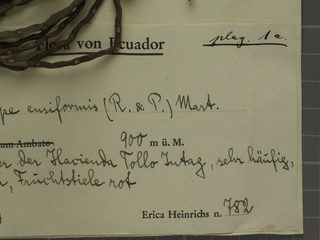 Flora von Ecuador plag. 1a.
pe ensiformis (R. & P.) Mart.
um Ambato. 900 m ü. M.
er der Havienda Tollo Intag, sehr häufig,
Fruchtstiele rot
Erica Heinrichs n. 782